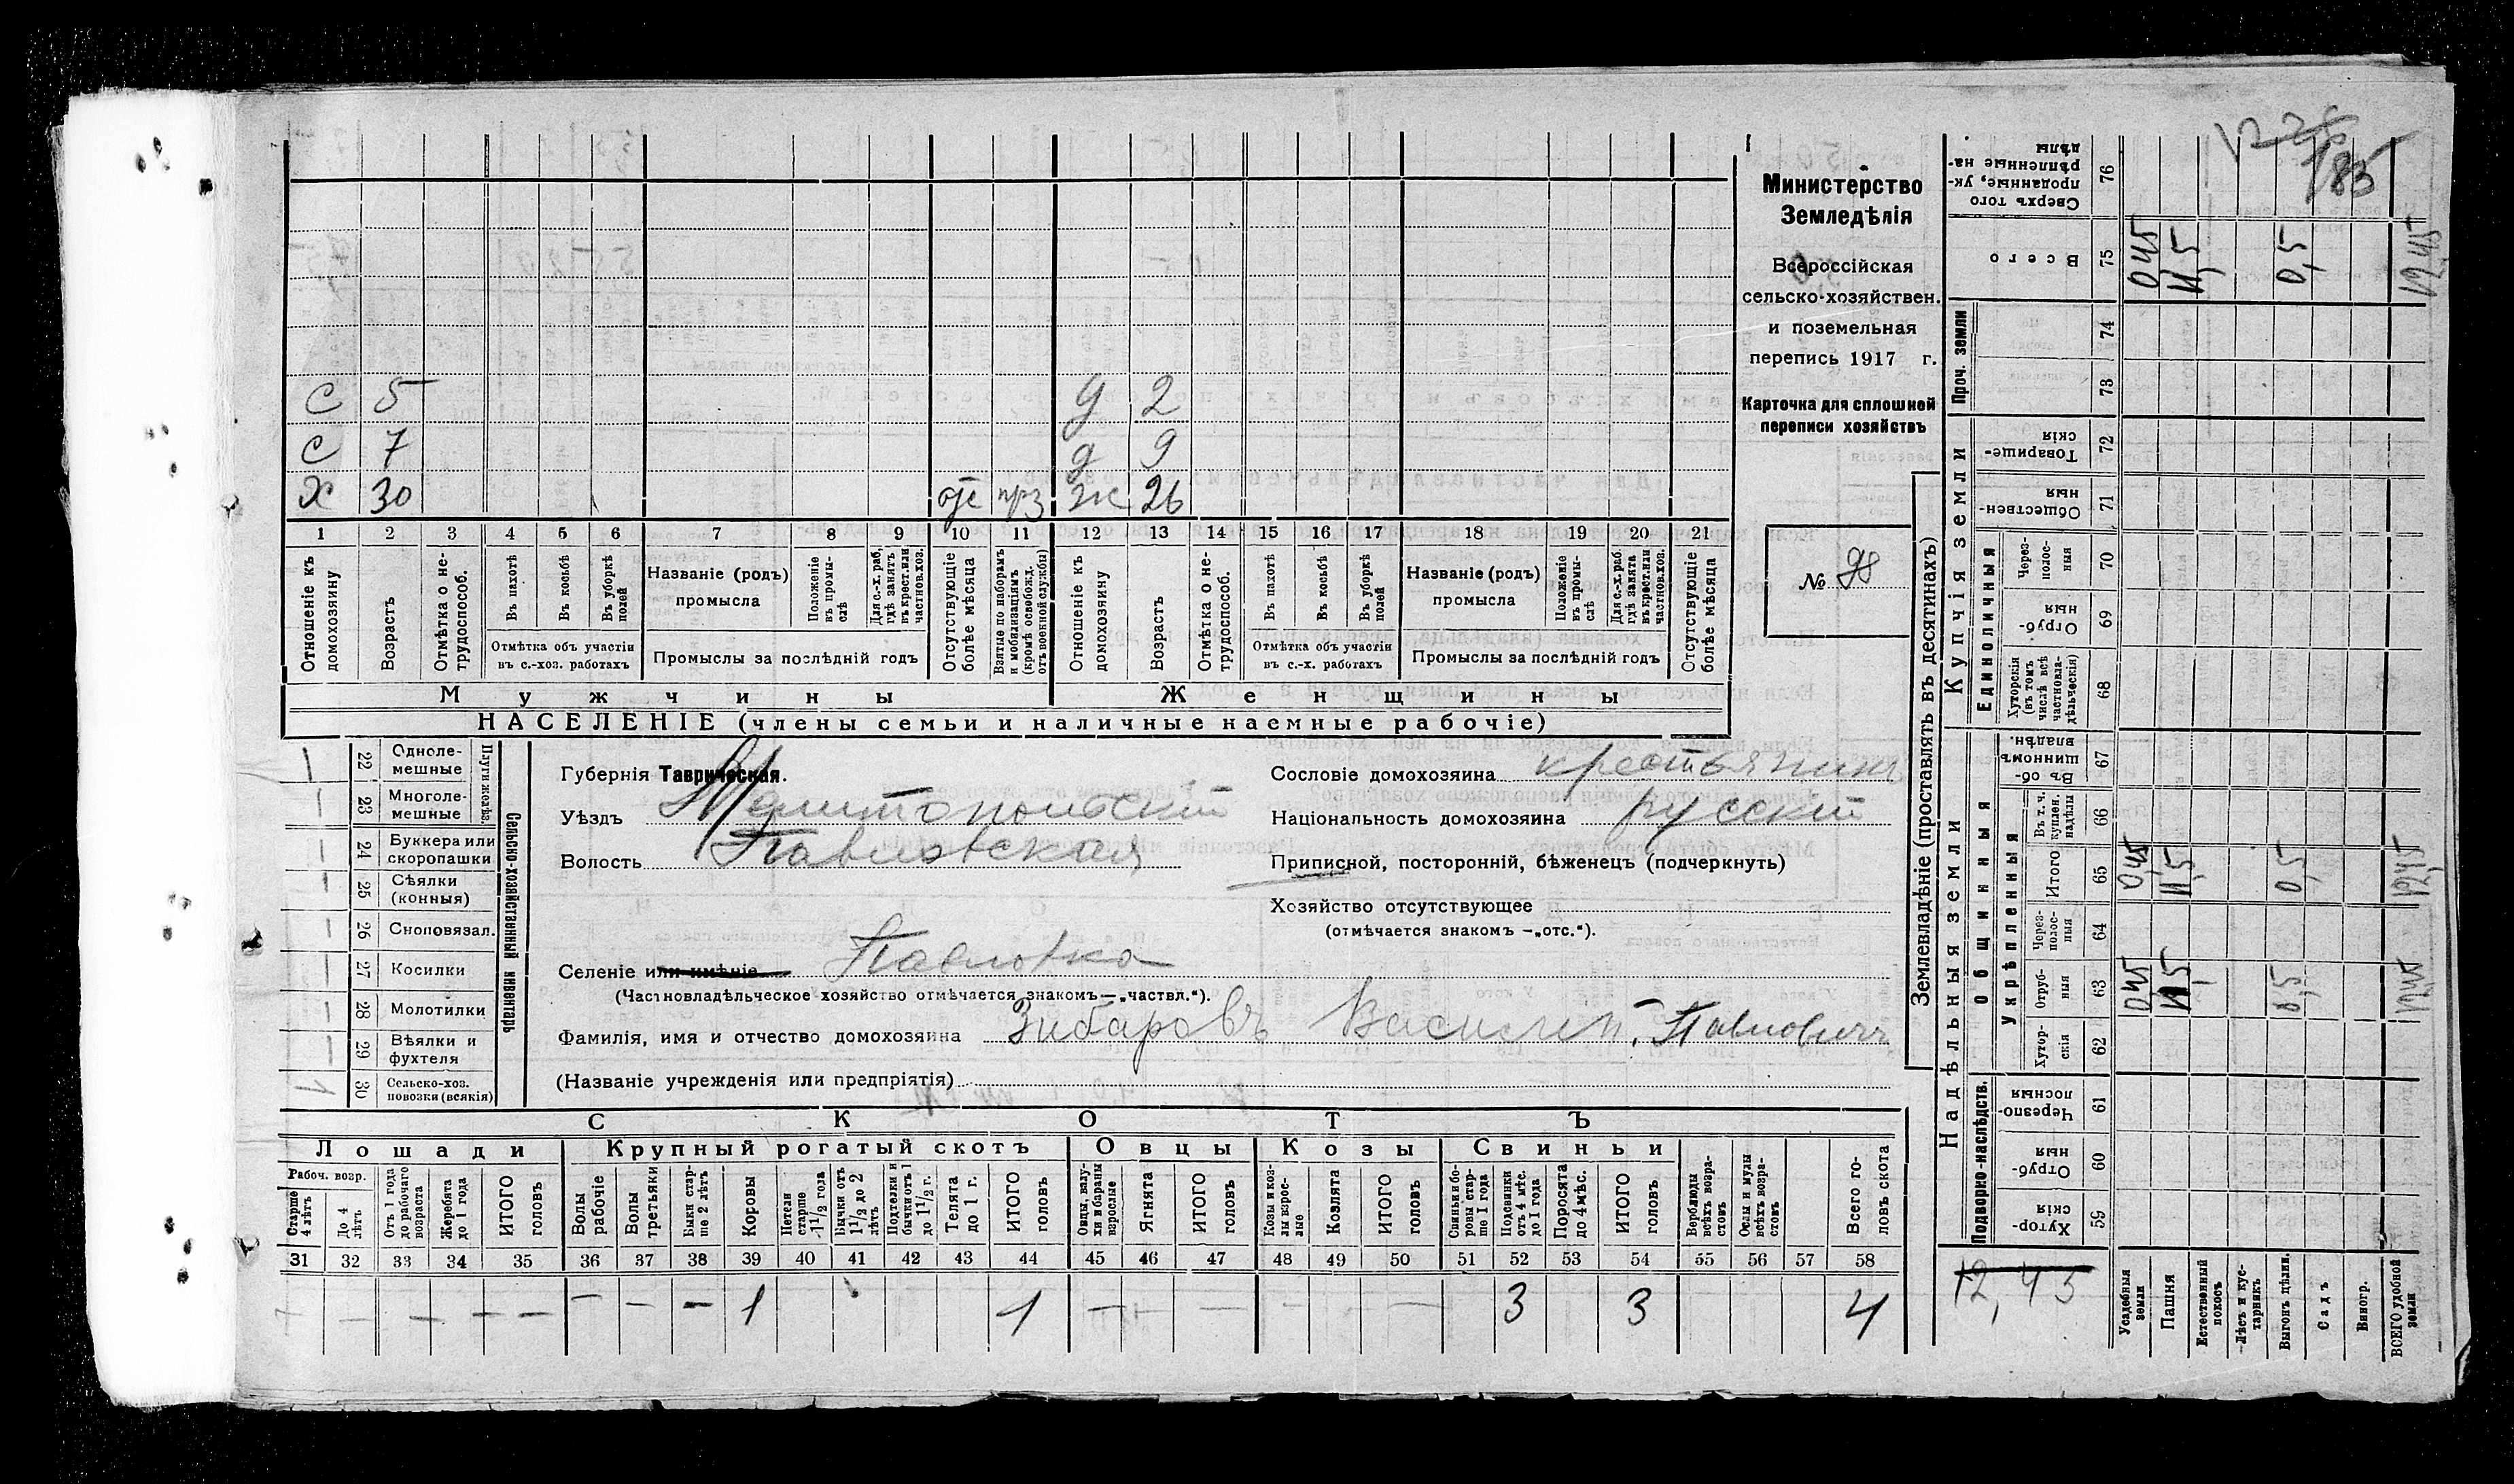 1226
185
Министерство
Земледѣлія
Всероссійская
сельско-хозяйствен.
и поземельная
перепись 1917 г.
Карточка для сплошной
переписи хозяйствъ
№ 98
С 5 д 2
С 7 д 9
Х 30 отс прз ж 26
1 2 3 4 5 6 7 8 9 10 11 12 13 14 15 16 17 18 19 20 21
Отношеніе къ домохозяину
Возрастъ
Отмѣтка о не-трудоспособ.
Въ пахотѣ
Въ косьбѣ
Въ уборкѣ полей
Отмѣтка объ участіи
въ с.-хоз. работахъ
Названіе (родъ)
промысла
Положеніе въ промы-слѣ
Для с.-х. раб. гдѣ занятъ въ крест. или частнов. хоз.
Промыслы за послѣдній годъ
Отсутствующіе болѣе мѣсяца
Взятые по наборамъ и мобилизаціямъ (кромѣ освобожд. отъ военной службы)
Отношеніе къ домохозяину
Возрастъ
Отмѣтка о не-трудоспособ.
Въ пахотѣ
Въ косьбѣ
Въ уборкѣ полей
Отмѣтка объ участіи
въ с.-х. работахъ
Названіе (родъ)
промысла
Положеніе въ промы-слѣ
Для с.-х. раб. гдѣ занята въ крест. или частнов. хоз.
Промыслы за послѣдній годъ
Отсутствующіе болѣе мѣсяца
Мужчины Женщины
НАСЕЛЕНІЕ (члены семьи и наличные наемные рабочіе)
Сельско-хозяйственный инвентарь
Плуги желѣз.
22 Одноле-мешные
23 Многоле-мешные
24 Буккера или скоропашки
25 Сѣялки (конныя)
26 Сноповязал.
27 Косилки
28 Молотилки
29 Вѣялки и фухтеля
1 30 Сельско-хоз. повозки (всякія)
Губернія Таврическая.
Уѣздъ Мелитопольскій
Волость Павловская
Селеніе или имѣніе Павловка
(Частновладѣльческое хозяйство отмѣчается знакомъ—„частвл.“).
Фамилія, имя и отчество домохозяина Зибаровъ Василій Павловичъ
(Названіе учрежденія или предпріятія)
Сословіе домохозяина крестьянинъ
Національность домохозяина русскій
Приписной, посторонній, бѣженецъ (подчеркнуть)
Хозяйство отсутствующее
(отмѣчается знакомъ —„отс.“).
СКОТЪ
Лошади Крупный рогатый скотъ Овцы Козы Свиньи
Рабоч. возр.
Старше 4 лѣтъ
До 4 лѣтъ
Отъ 1 года до рабочаго возраста
Жеребята до 1 года
ИТОГО головъ
Волы рабочіе
Волы третьяки
Быки стар-ше 2 лѣтъ
Коровы
Нетели старше 1½ года
Бычки отъ 1½ до 2 лѣтъ
Подтелки и бычки отъ 1 до 1½ г.
Телята до 1 г.
ИТОГО головъ
Овцы, валу-хи и бараны взрослые
Ягнята
ИТОГО головъ
Козы и коз-лы взрос-лые
Козлята
ИТОГО головъ
Свиньи и бо-ровы стар-ше 1 года
Подсвинки отъ 4 мѣс. до 1 года
Поросята до 4 мѣс.
ИТОГО головъ
Верблюды всѣхъ возра-стовъ
Ослы и мулы всѣхъ возра-стовъ
Всего го-ловъ скота
31 32 33 34 35 36 37 38 39 40 41 42 43 44 45 46 47 48 49 50 51 52 53 54 55 56 57 58
— — — — — — — 1 1 — — — — 3 3 4
Землевладѣніе (проставлять въ десятинахъ)
Надѣльныя земли Купчія земли Проч. земли
Подворно-наслѣдств.
Общинныя
Укрѣпленныя
Единоличныя
Сверхъ того проданные, ук-рѣпленные на-дѣлы 76
Всего 75 0,45 11,5 0,5 12,45
74
73
Товарище-скія 72
Обществен-ныя 71
Через-полос-ныя 70
Отруб-ныя 69
Хуторскія (въ томъ числѣ всѣ частновла-дѣльческія) 68
Въ об-щинномъ владѣн. 67
Въ т. ч. куплен. надѣлы 66
Итого 65 0,45 11,5 0,5 12,45
Через-полос-ныя 64
Отруб-ныя 63 0,45 11,5 0,5 12,45
Хутор-скія 62
Черезпо-лосныя 61
Отруб-ныя 60
Хутор-скія 59
12,45
Усадебныя земли
Пашня
Естественный покосъ
Лѣсъ и кус-тарникъ
Выгонъ цѣлин.
Садъ
Виногр.
ВСЕГО удобной земли